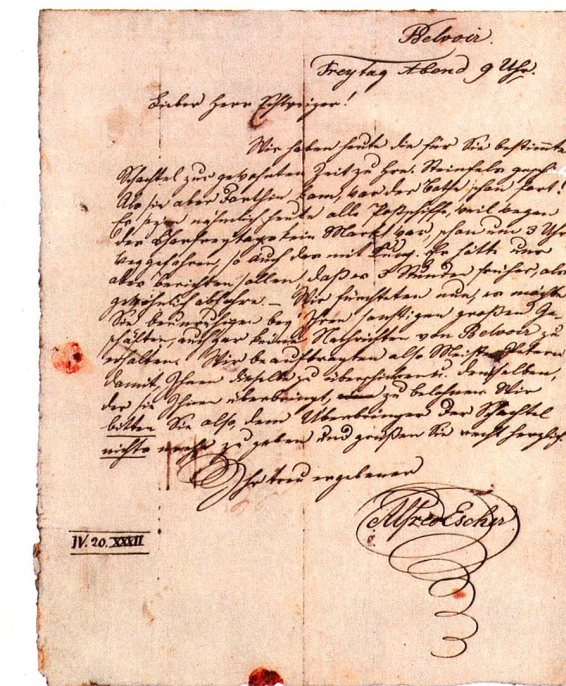 Belvoir.
Freytag Abend 9 Uhr.
Lieber Herr Schweizer!
Wir haben heute die für Sie bestimmte
Schachtel zur gewohnten Zeit zu Hrn. Steinfels
Als sie aber dorthin kam, war der Bothe schon fort!
heute alle Postschiffe, weil wegen
des Charfreytags kein Markt war, schon um 3 Uhr
weggefahren, so auch das mit Er hätte uns
aber berichten sollen, daß er 3 Stunden früher als
gewöhnlich abfahre. – Wir fürchteten nun, es möchte
Sie beunruhigen bey Ihren sonstigen großen Ge-
schäften, auch gar keine Nachrichten von Belvoir zu
erhalten. Wir beauftragten also
damit, Ihnen dieselbe zu überschicken u. denselben,
der sie Ihnen überbringt, zu belohnen. Wir
bitten Sie also, dem Überbringer der Schachtel
nichts mehr zu geben und grüßen Sie recht herzlich
Ihr treu ergebener
Alfred Escher
IV. 20. XXXII